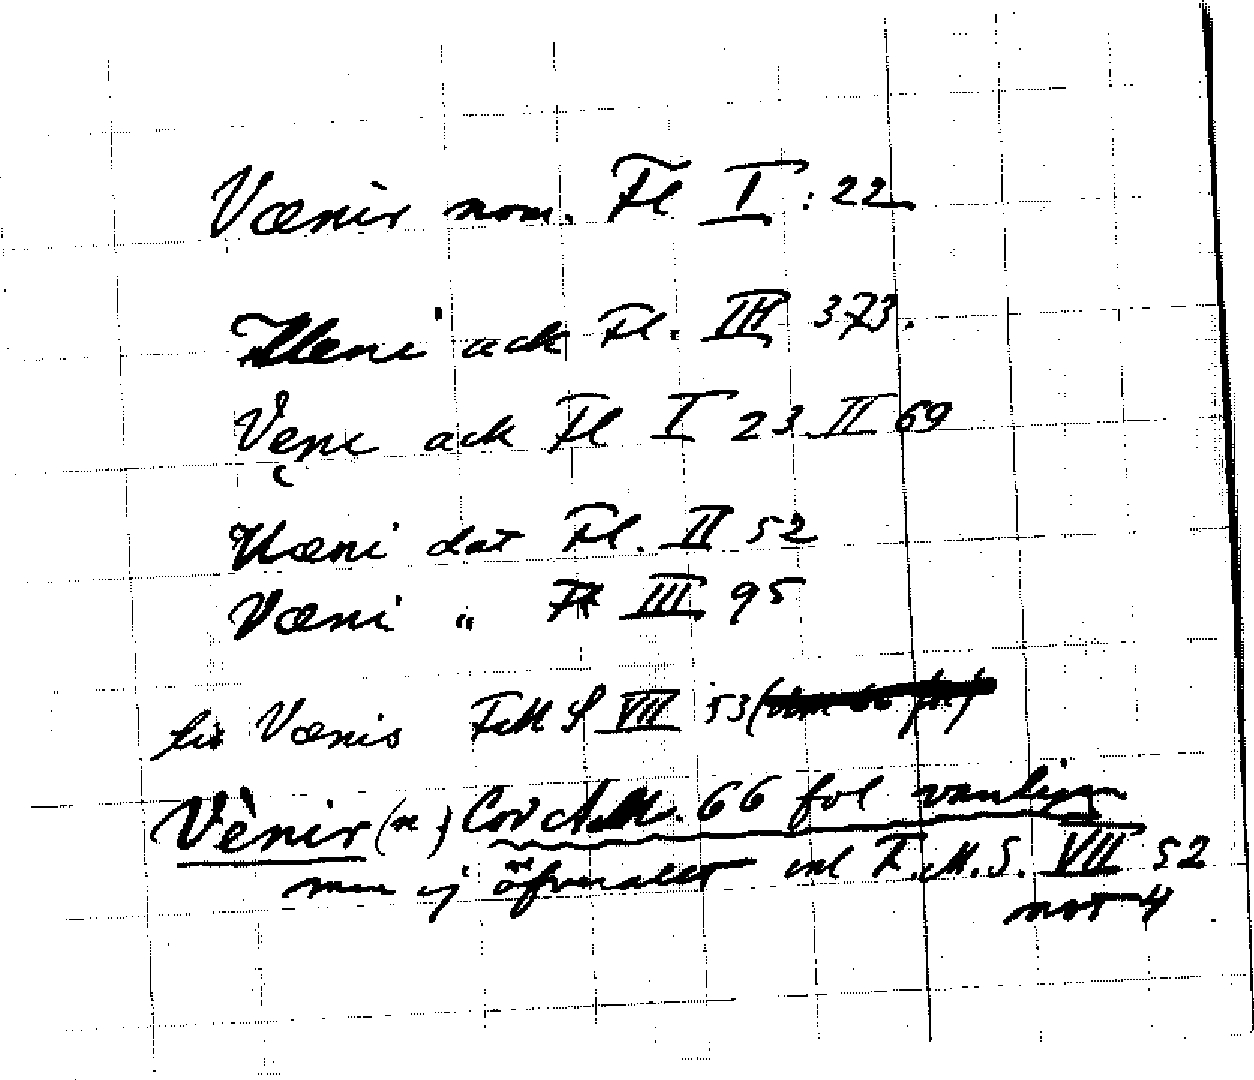 Vænir nom. Fl I : 22
Væni ack Fl. III 373.
Vęni ack Fl I 23 II 69
Væni dat Fl. II 52
Væni " Fl III 95
Vænis FMS VIII 53
Vènir (n) Cod A.M. 66 fol vanligen
men ej öfverallt enl F.M.S. VII 52
not 4